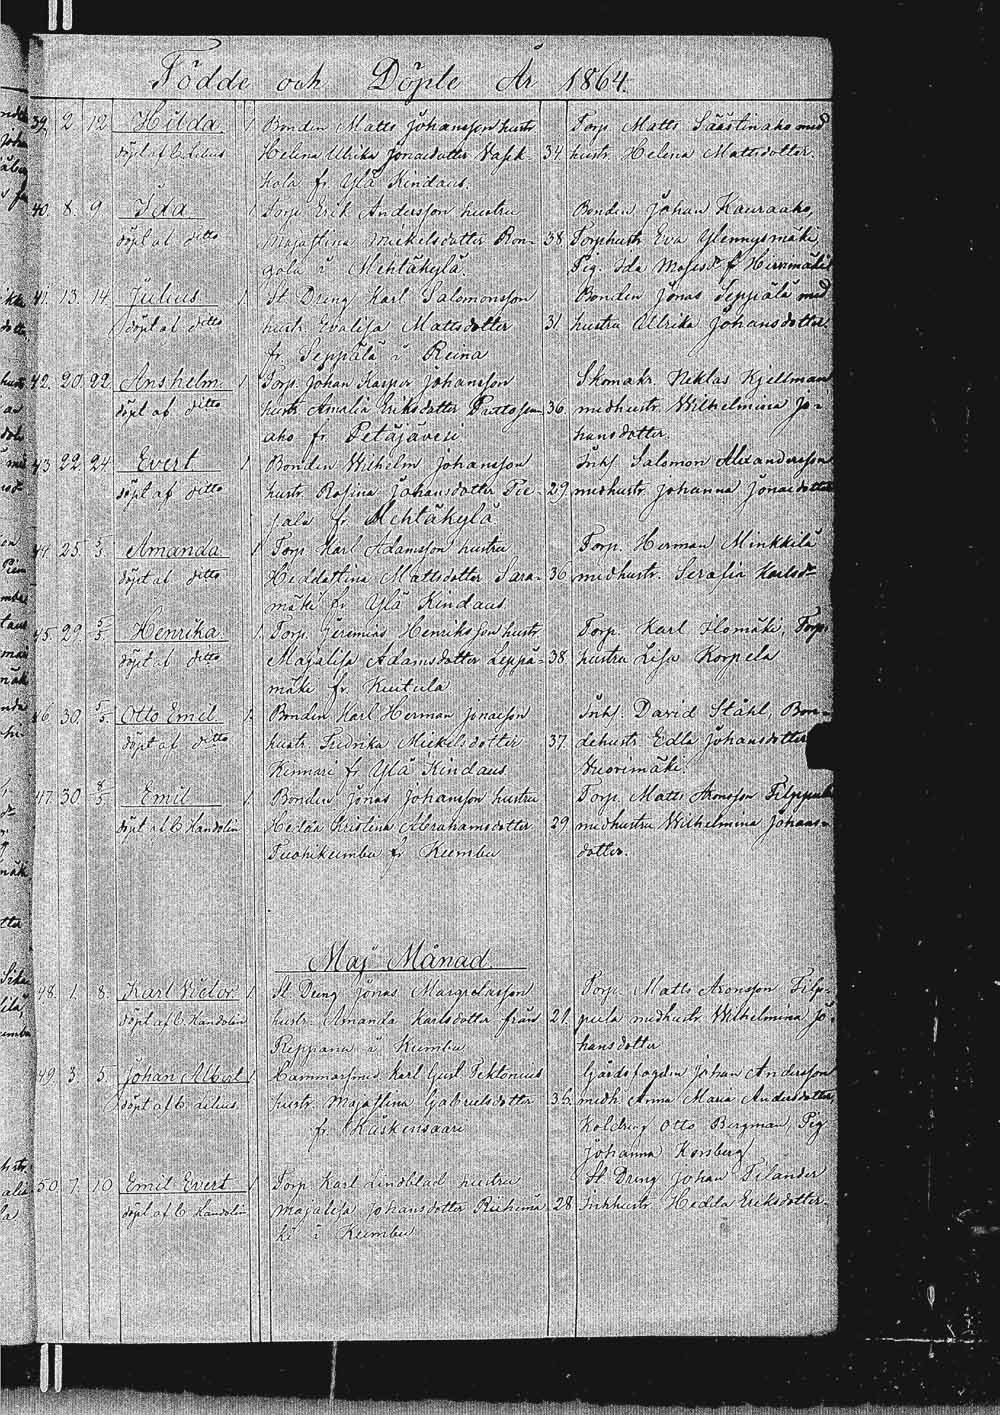 Födde och Döpte År 1864.
39. 2. 12 Hilda 1 Bonden Matts Johansson hustr. Torp. Matts Säästinaho med
döpt af C. Lilius Helena Ulrika Jonaedotter Vasik- 34. hustr. Helena Mattsdotter.
kola fr. Ylä Kindaus.
40. 8. 9 Ida 1 Torp. Erik Andersson hustru Bonden Johan Hauraaho,
döpt af ditto Majastina Mickelsdotter Ron- 38 Torphustr. Eva Ylennysmäki,
gola i Mehtäkylä. Pig. Ida Mosisdr f. Hirvimäki
41. 13. 14 Julius 1 St. Dreng Karl Salomonsson Bonden Jonas Seppälä med
döpt af ditto hustr. Evalisa Mattsdotter 31 hustru Ulrika Johansdotter.
fr. Seppälä i Reina
42. 20. 22 Anshelm 1 Torp. Johan Kasper Johansson Skomakr. Neklas Kjellman
döpt af ditto hustr. Amalia Eriksdotter 36. medhustr. Wilhelmina Jo-
aho fr. Petäjävesi hansdotter.
43 22. 24 Evert 1 Bonden Wilhelm Johansson Inhs. Salomon Alexandersson
döpt af ditto hustr. Rosina Johansdotter Pie- 29 medhustr. Johanna Jonaedotter
sala fr. Mehtäkylä
44 25 5/5 Amanda 1 Torp. Karl Adamsson hustru Torp. Herman Minkkilä
döpt af ditto Heddastina Mattsdotter Sara- 36 medhustr. Serafia Karlsdr
mäki fr. Ylä Kindaus.
45. 29. 5/5 Henrika 1. Torp. Jeremias Henriksson hustr. Torp. Karl Ilomäki, Torp.
döpt af ditto Majalisa Adamsdotter Leppä- 38. hustru Lisa Korpela
mäki fr. Kuitula
46. 30. 5/5. Otto Emil 1. Bonden Karl Herman Jonaesson Inhs. David Ståhl, Bon-
döpt af ditto hustr. Fredrika Mickelsdotter 37. dehustr. Edla Johansdotter
Kinnari fr. Ylä Kindaus Vuorimäki.
47. 30 8/5 Emil 1. Bonden Jonas Johansson hustru Torp. Matts Aronsson Filppula
döpt af C. Handolin Hedda Kristina Abrahamsdotter 29 medhustru Wilhelmina Johans-
Tuohikumbu fr. Kumbu dotter.
Maj Månad.
48. 1. 8. Karl Victor 1 St. Dreng Jonas Margretasson Torp. Matts Aronsson Filp-
döpt af C. Handolin hustr. Amanda Karlsdotter från 21. pula medhustr. Wilhelmina Jo-
i Kumbu hansdotter
49. 3. 5. Johan Albert 1 Hammarsmed Karl Gust. Tektonius Gårdsfogden Johan Andersson
döpt af C. Lilius hustr. Majastina Gabrielsdotter 35. medh. Anna Maria Andersdotter,
fr. Käskensaari Koldreng Otto Bergman, Pig
Johanna Korsberg
50. 7. 10 Emil Evert 1 Torp. Karl Lindblad hustru St. Dreng Johan Filander
döpt af C. Handolin Majalisa Johansdotter Riihimä- 28 Inhhustr. Hedda Eriksdotter.
ki i Kumbu